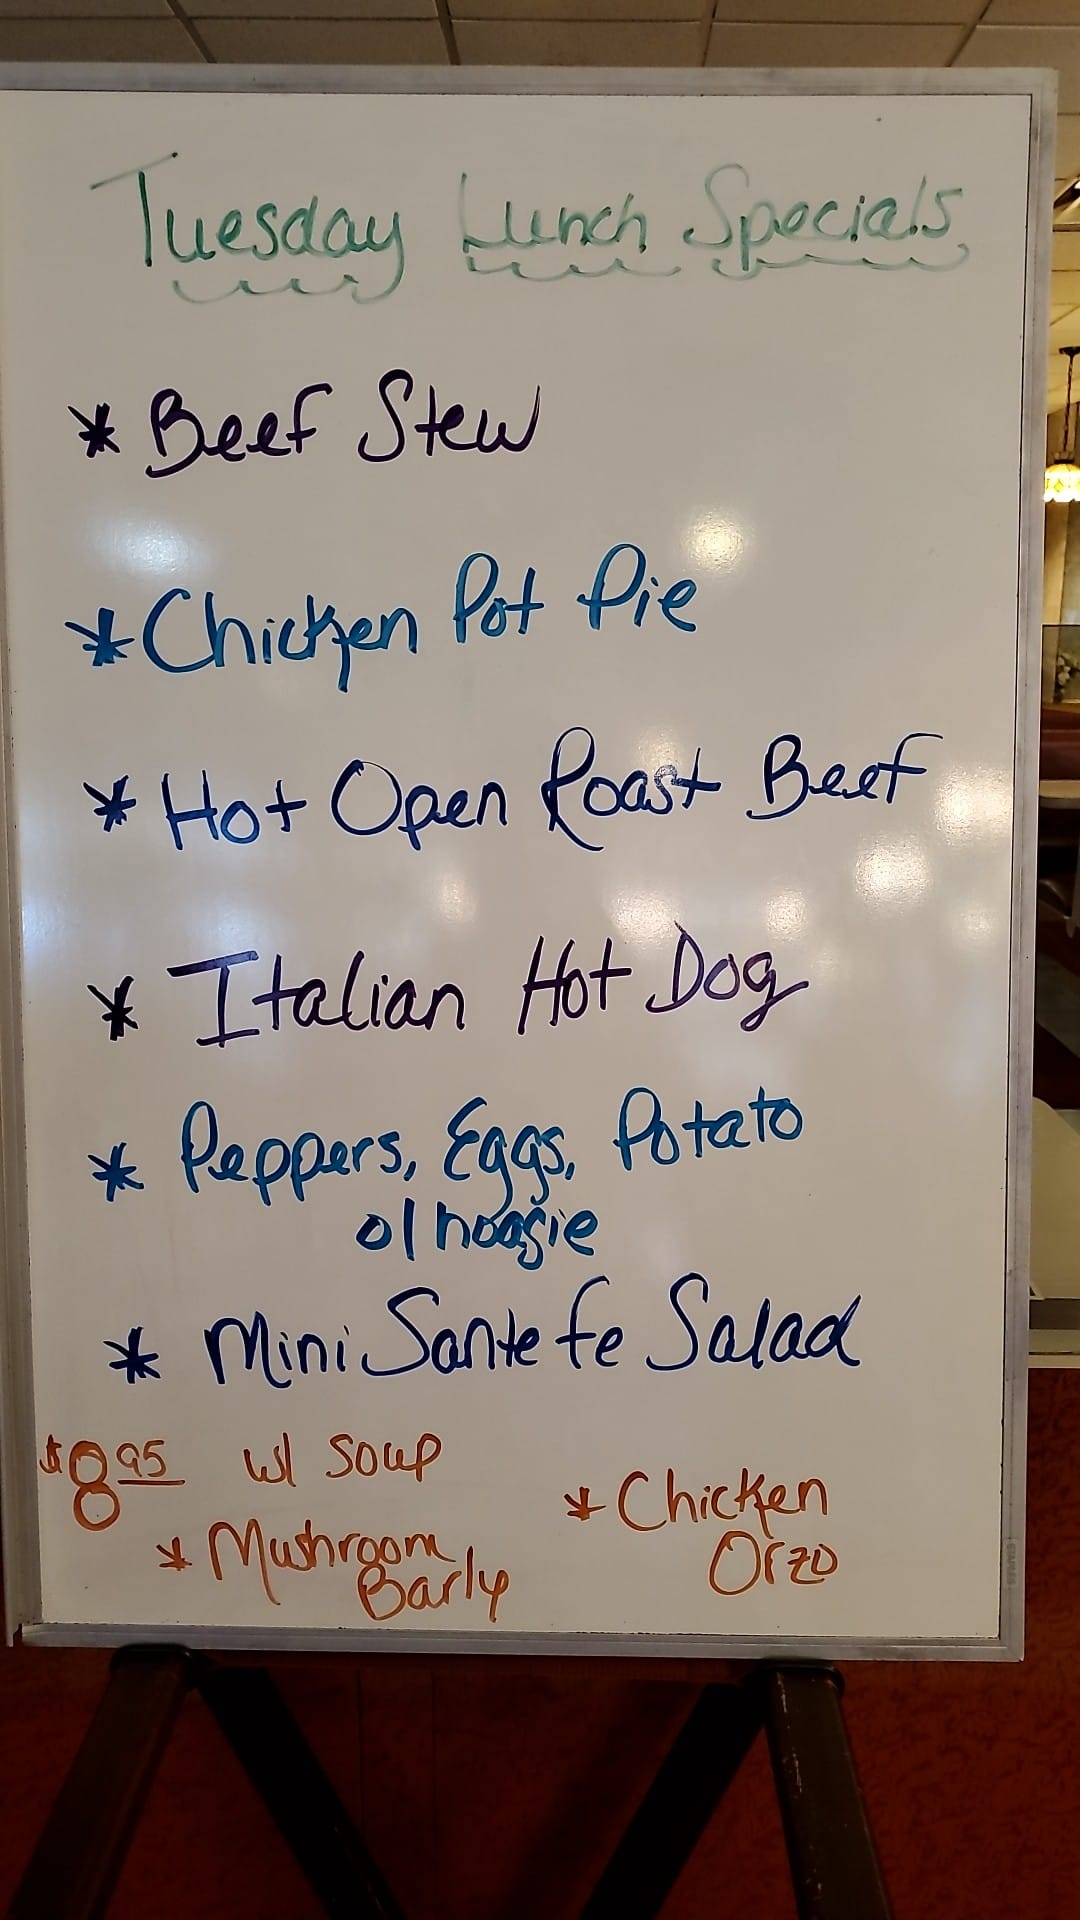 Tuesday Lunch Specials
* Beef Stew
* Chicken Pot Pie
* Hot Open Roast Beef
* Italian Hot Dog
* Peppers, Eggs, Potato
o/hoagie
* Mini Sante Fe Salad
$8.95 w/ soup
* Mushroom Barly
* Chicken Orzo